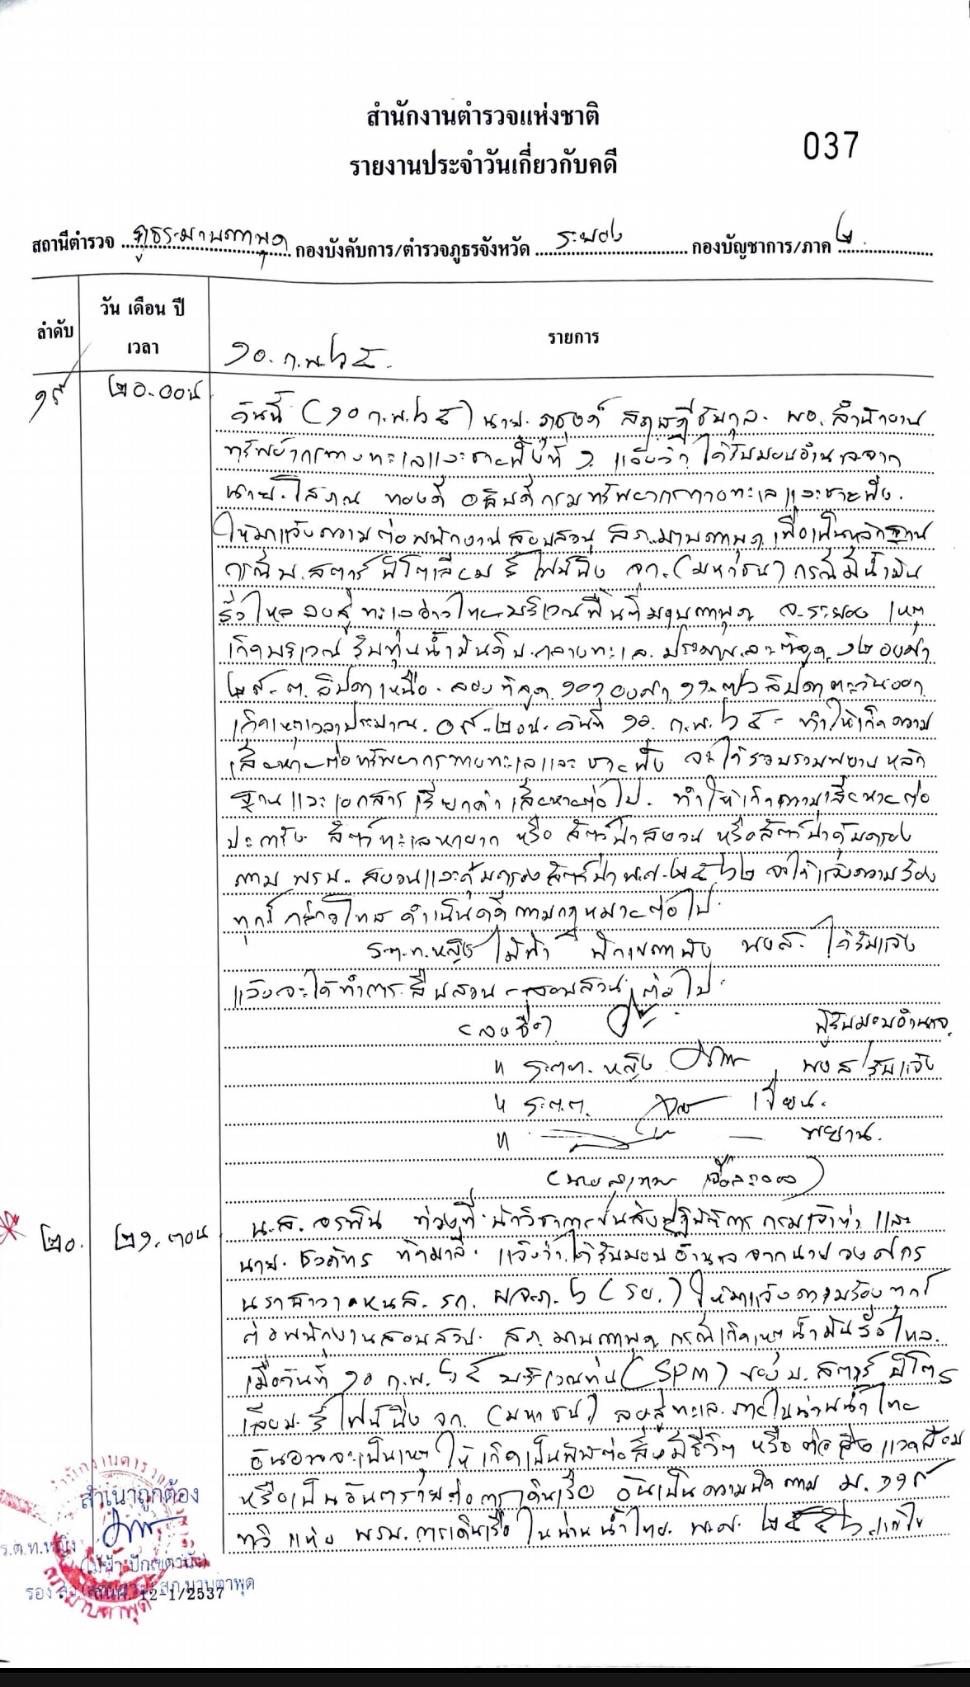 สำนักงานตำรวจแห่งชาติ
037
รายงานประจำวันเกี่ยวกับคดี
สถานีตำรวจ ภูธรมาบตาพุด กองบังคับการ/ตำรวจภูธรจังหวัด ระยอง กองบัญชาการ/ภาค ๒
ลำดับ
วัน เดือน ปี
เวลา
รายการ
๑๐. ก.พ. ๖๕.
๑๙ ๒๐.๐๐น.
วันนี้ (๑๐ ก.พ. ๖๕) นาย. ผอ. สำนักงาน
ทรัพยากรทางทะเลและชายฝั่งที่ ๑. แจ้งว่า ได้รับมอบอำนาจจาก
นาย. โสภณ ทองดี อธิบดีกรมทรัพยากรทางทะเลและชายฝั่ง.
ให้มาแจ้งความต่อพนักงานสอบสวน สภ.มาบตาพุด เพื่อเป็นหลักฐาน
กรณี บ. สตาร์ ปิโตรเลียม รีไฟน์นิ่ง จก. (มหาชน) กรณีมีน้ำมัน
รั่วไหล ลงสู่ทะเลอ่าวไทยบริเวณพื้นที่มาบตาพุด จ.ระยอง เหตุ
เกิดบริเวณ ทุ่นน้ำมันดิบ.กลางทะเล. ประมาณ.ละติจูด. ๑๒ องศา
ลิปดาเหนือ. ลองติจูด ๑๐๑ องศา ลิปดาตะวันออก
เกิดเหตุเวลาประมาณ. วันที่ ๑๐. ก.พ. ๖๕ - ทำให้เกิดความ
เสียหายต่อทรัพยากรทางทะเลและชายฝั่ง จะได้รวบรวมพยานหลัก
ฐานและเอกสาร เรียกค่าเสียหายต่อไป. ทำให้เกิดความเสียหายต่อ
ปะการัง สัตว์ทะเลหายาก หรือ สัตว์ป่าสงวน หรือสัตว์ป่าคุ้มครอง
ตาม พรบ. สงวนและคุ้มครองสัตว์ป่า พ.ศ. ๒๕๖๒ จะได้แจ้งความร้อง
ทุกข์ กล่าวโทษ ดำเนินคดีตามกฎหมายต่อไป
ร.ต.ท.หญิง ไม้ฟ้า ปักเขตานัง พงส. ได้รับแจ้ง
แล้วจะได้ทำการสืบสวน - สอบสวนต่อไป.
(ลงชื่อ) ผู้รับมอบอำนาจ
" ร.ต.ท. หญิง พงส/รับแจ้ง
" ร.ต.ต. เขียน.
" พยาน.
๒๐. ๒๑.๓๐น น.ส. อรพิน นักวิชาการขนส่งปฏิบัติการ กรมเจ้าท่า และ
นาย. แจ้งว่า ได้รับมอบอำนาจ จากนาย
รก. ผจภ. ๖ (รย.) ให้มาแจ้งความร้องทุกข์
ต่อพนักงานสอบสวน. สภ. มาบตาพุด กรณีเกิดเหตุน้ำมันรั่วไหล.
เมื่อวันที่ ๑๐ ก.พ. ๖๕ บริเวณทุ่น (SPM) ของ บ. สตาร์ ปิโตร
เลียม. รีไฟน์นิ่ง จก. (มหาชน) ลงสู่ทะเล. ภายในน่านน้ำไทย
อันอาจจะเป็นเหตุให้เกิดเป็นพิษต่อสิ่งมีชีวิต หรือ ต่อสิ่งแวดล้อม
หรือเป็นอันตรายต่อการเดินเรือ อันเป็นความผิดตาม ม. ๑๑๙
ทวิ แห่ง พรบ. การเดินเรือในน่านน้ำไทย. พ.ศ.
สำเนาถูกต้อง
ร.ต.ท.หญิง
(ไม้ฟ้า ปักเขตานัง)
รอง สว.(สอบสวน) สภ.มาบตาพุด
12-1/2537